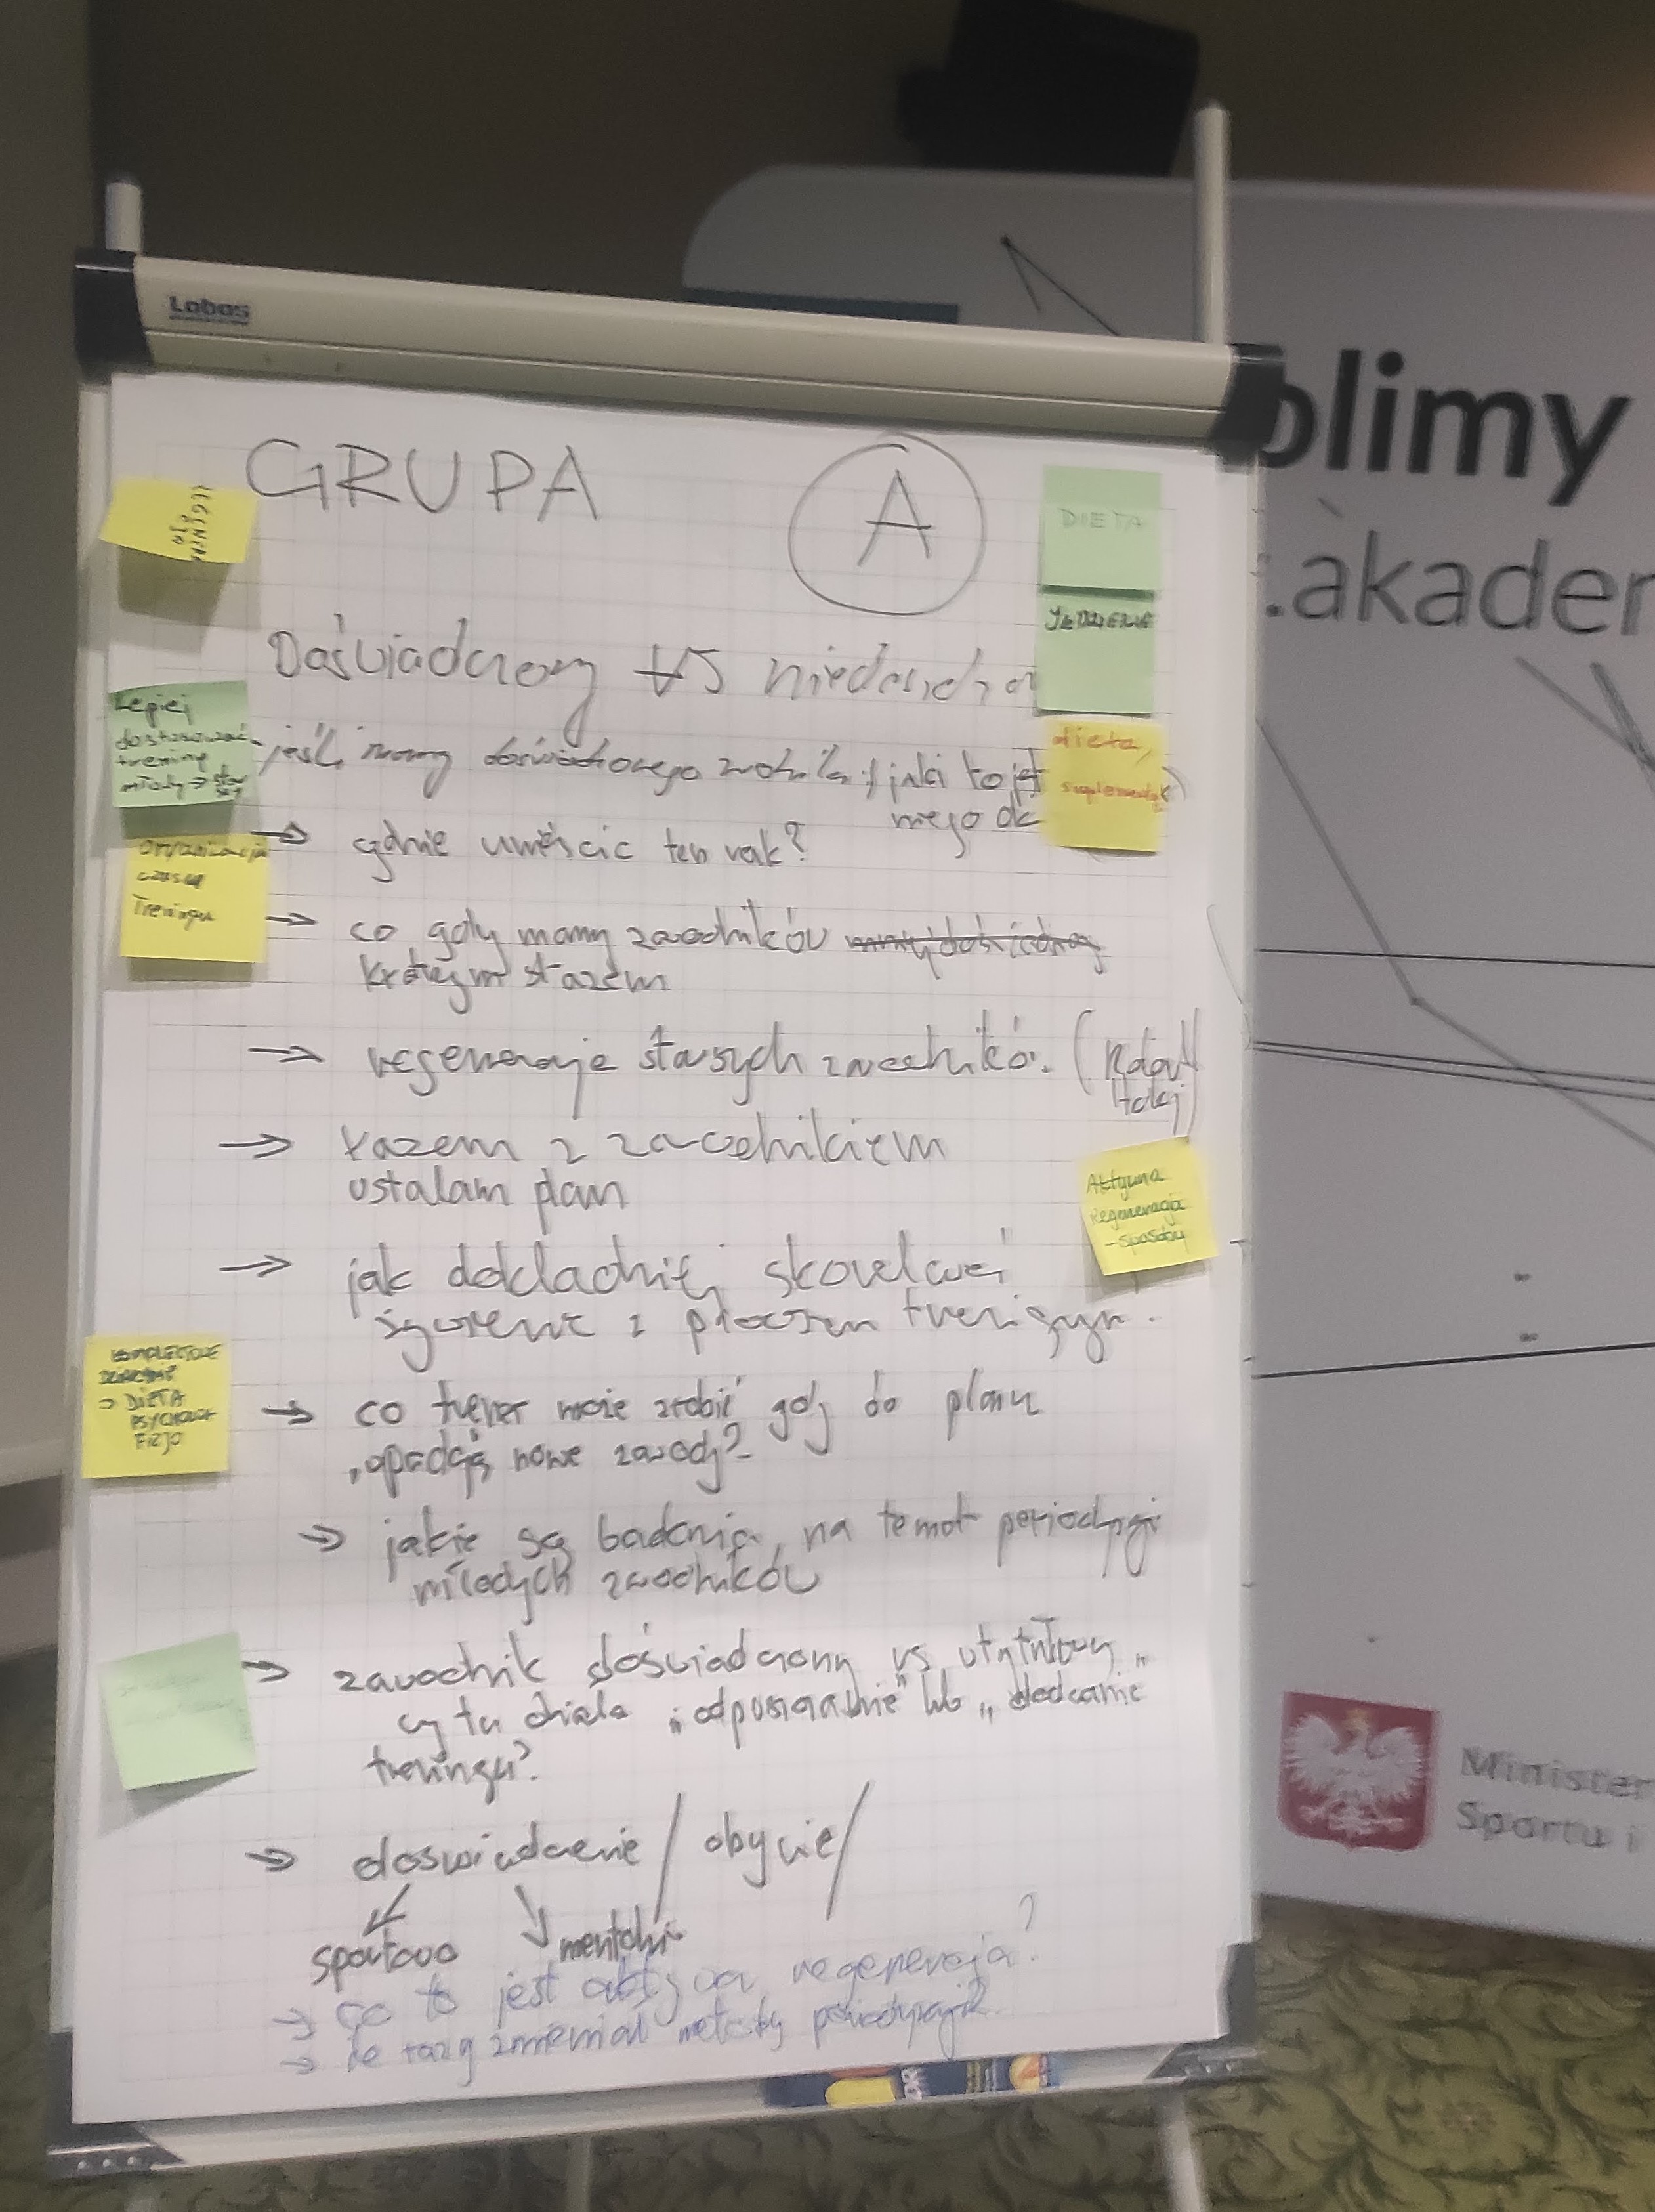 Lobos
olimy
.akader
GRUPA A
REGENERA
CJA
DIETA
JEDZENIE
Doświadczony VS niedośw
Lepiej
dostosować
trening
młody → star
szy
jeśli mamy doświadczonego zawodnika i jaki to jest
niego ok
dieta,
suplementacja
→ gdzie umieścić ten rok?
organizacja
czasu
Treningu
→ co gdy mamy zawodników
krótszym stażem
→ regeneracja starszych zawodników. (
→ razem z zawodnikiem
ustalam plan
Aktywna
Regeneracja
- sposoby
→ jak dokładniej skorelować
z procesem treningowym.
KOMPLEKSOWE
→ DIETA
PSYCHOLOG
FIZJO
→ co trener może zrobić gdy do planu
„wpadają nowe zawody?
→ jakie są badania na temat periodyzacji
młodych zawodników
→ zawodnik doświadczony vs utytułowany
czy tu działa „odpuszczanie" lub „dodawanie
treningu?
→ doświadczenie / obycie /
sportowo mentalnie
→ co to jest aktywna regeneracja?
→ ile razy zmieniał metody periodyzacji?
Minister
Sportu i